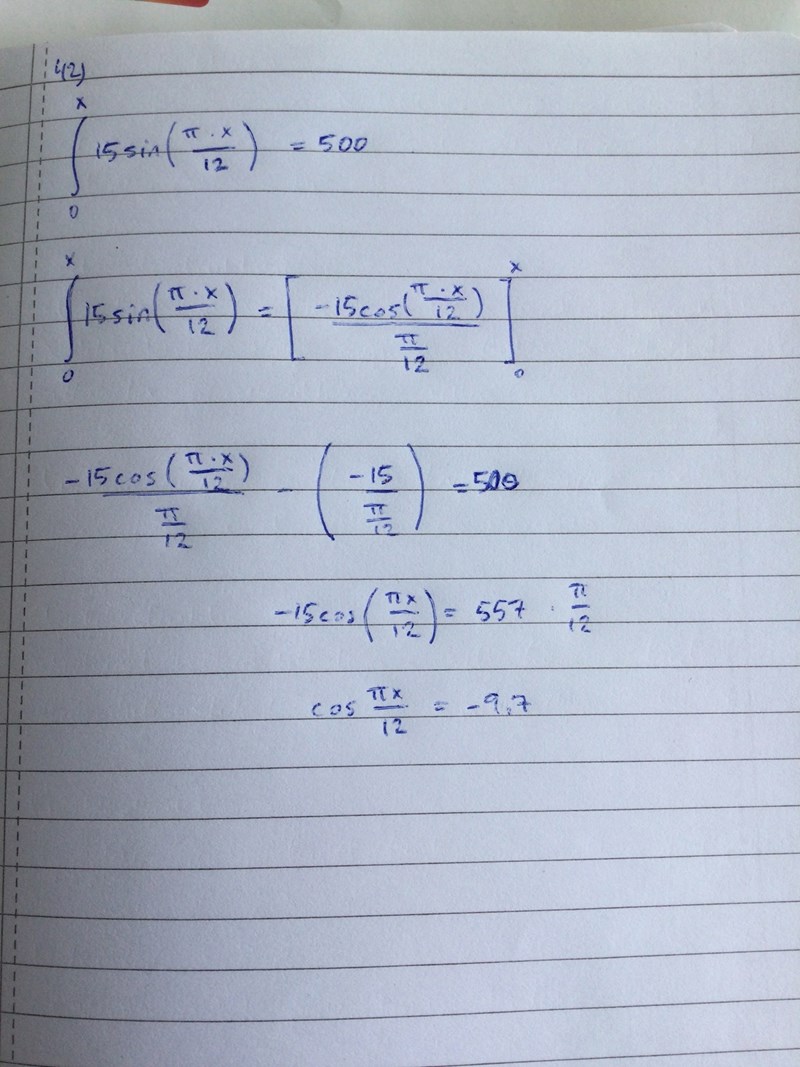 42)
∫₀ˣ 15sin(π·x/12) = 500
∫₀ˣ 15sin(π·x/12) = [-15cos(π·x/12)/(π/12)]₀ˣ
-15cos(π·x/12)/(π/12) - (-15/(π/12)) = 500
-15cos(πx/12) = 557 · π/12
cos πx/12 = -9,7